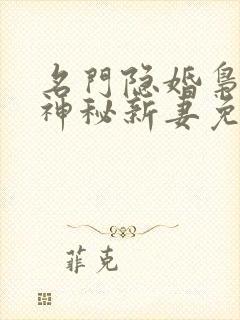 名門隐婚梟
神秘新妻免
菲克